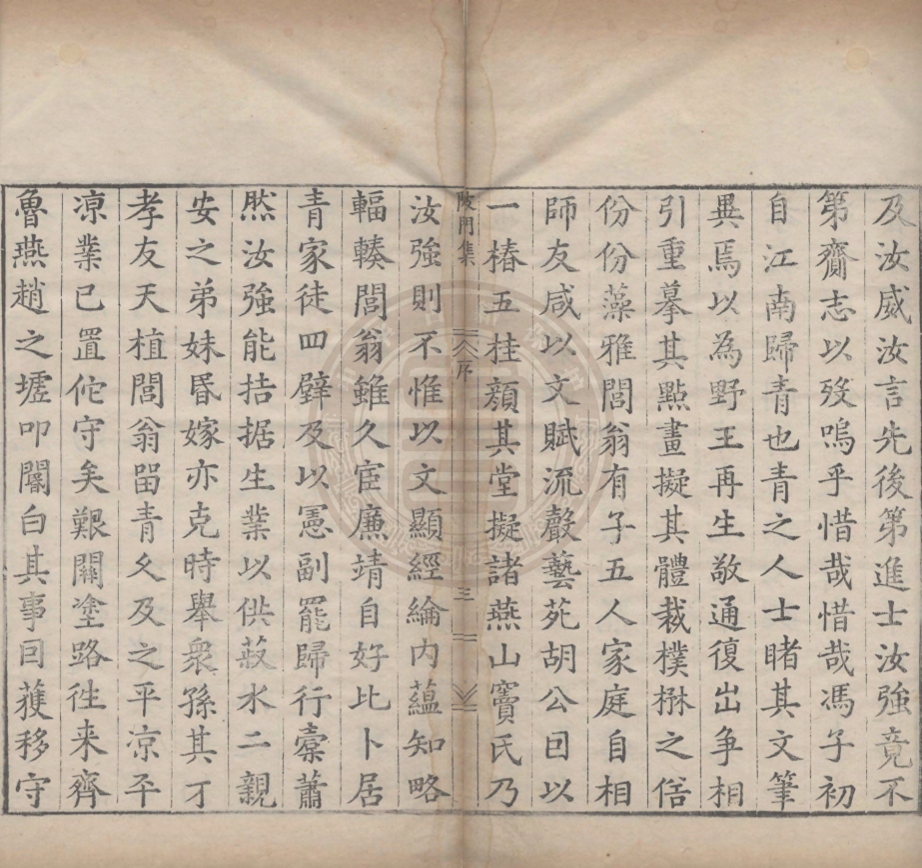 及汝威汝言先後第進士汝強竟不
第齎志以歿嗚乎惜哉惜哉馮子初
自江南歸青也青之人士睹其文筆
異焉以為野王再生敬通復出争相
引重摹其點畫擬其體裁樸樕之俗
份份藻雅閭翁有子五人家庭自相
師友咸以文賦流聲藝苑胡公因以
一椿五桂顏其堂擬諸燕山竇氏乃
陂門集
序
三
汝強則不惟以文顯經綸内蘊知略
輻輳閭翁雖久宦廉靖自好比卜居
青家徒四壁及以憲副罷歸行橐蕭
然汝強能拮据生業以供菽水二親
安之弟妹昏嫁亦克時舉衆孫其才
孝友天植閭翁留青久及之平凉平
凉業已置佗守矣艱關塗路徃来齊
魯燕趙之墟叩闥白其事因獲移守